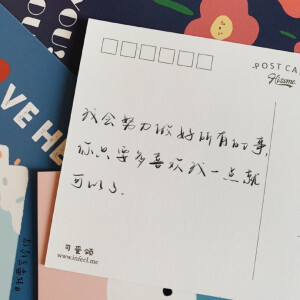 YOU:
POST CA
我会努力做好所有的事,
你只要多喜欢我一点就
可以了.
www.infeel.me
VE HE